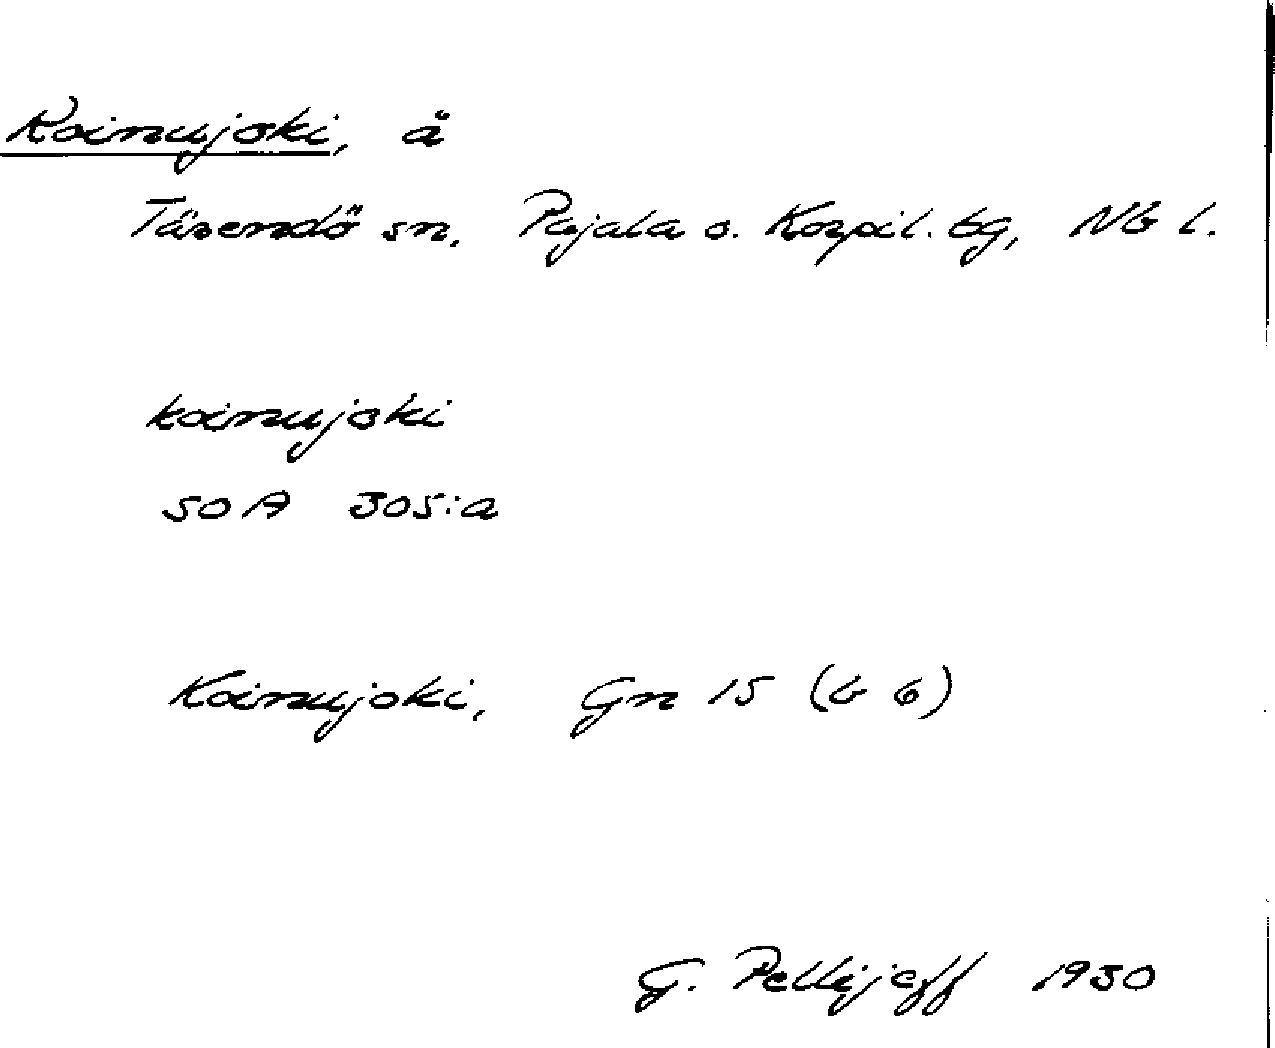 Koinujoki, å
Tärendö sn. Pajala o. Korpil. tg, Nb l.
koinujoki
SOA 305:a
Koinujoki, Gn 15 (b 6)
G. Pellijeff 1930